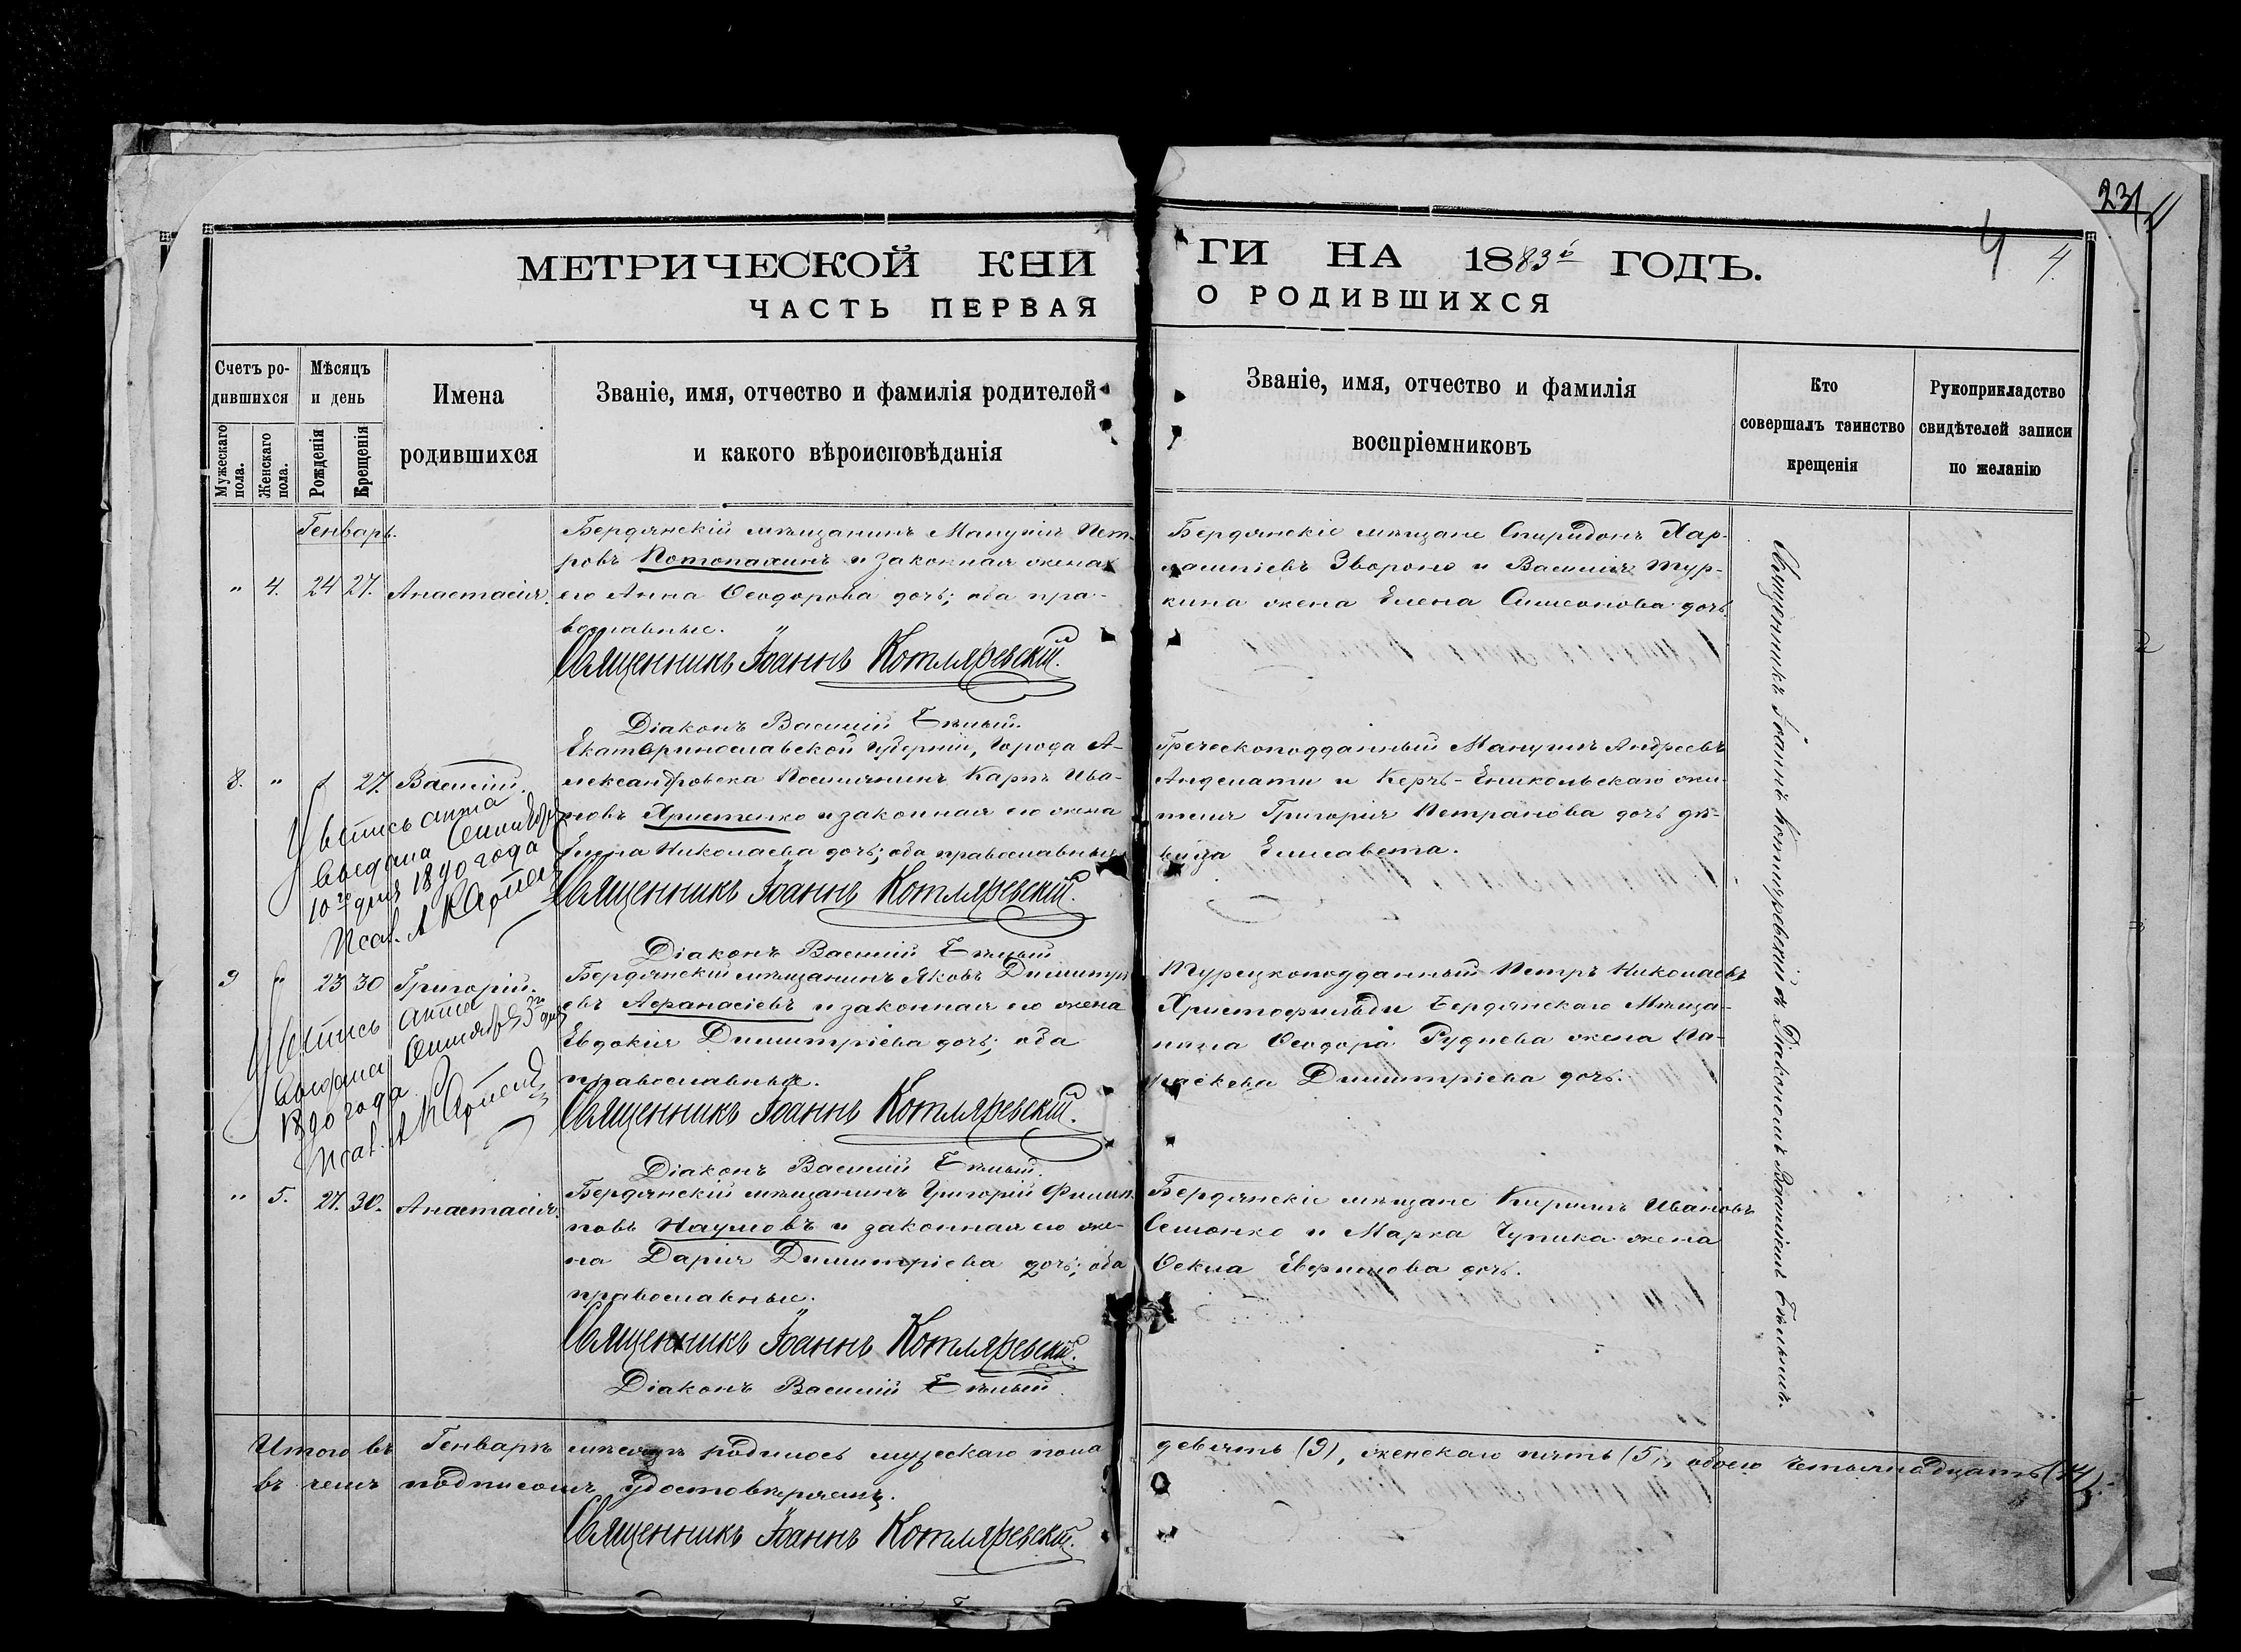 231
4 4
МЕТРИЧЕСКОЙ КНИ ГИ НА 1883й ГОДЪ.
ЧАСТЬ ПЕРВАЯ О РОДИВШИХСЯ
Счетъ родившихся
Мужескаго пола.
Женскаго пола.
Мѣсяцъ и день
Рожденія
Крещенія
Имена родившихся
Званіе, имя, отчество и фамилія родителей
и какого вѣроисповѣданія
Званіе, имя, отчество и фамилія
воспріемниковъ
Кто
совершалъ таинство
крещенія
Рукоприкладство
свидѣтелей записи
по желанію
Генварь.
" 4. 24 27. Анастасія.
Бердянскій мѣщанинъ Мануилъ Пет-
ровъ Потопахинъ и законная жена
его Анна Ѳеодорова дочь; оба пра-
вославные.
Священникъ Іоаннъ Котляревскій.
Діаконъ Василій Бѣлый.
Бердянскіе мѣщане Спиридонъ Хар-
лампіевъ Звороно и Василія Тур-
кина жена Елена Симеонова дочь
8. " 27. Василій.
Екатеринославской губерніи, города А-
лександровска Карпъ Ива-
новъ Христенко и законная его жена
Николаева дочь; оба православные
Священникъ Іоаннъ Котляревскій.
Діаконъ Василій Бѣлый
Греческоподданный Мануилъ Андреевъ
и Керчь-Еникольскаго жи-
теля Григорія Петранова дочь дѣ-
вица Елисавета.
выпись акта
выдана Сентября
10го дня 1890 года
Псал. А
9 " 23 30 Григорій.
Бердянскій мѣщанинъ Яковъ Димитрі-
евъ Аѳанасіевъ и законная его жена
Евдокія Димитріева дочь; оба
православные.
Священникъ Іоаннъ Котляревскій.
Діаконъ Василій Бѣлый.
Турецкоподданный Петръ Николаевъ
Христофильди Бердянскаго Мѣща-
нина Ѳеодора Руднева жена Па-
раскева Димитріева дочь.
выпись акта
выдана Сентября 3го дня
1890 года
Псал. А
" 5. 27. 30. Анастасія.
Бердянскій мѣщанинъ Григорій Филип-
повъ Наумовъ и законная его же-
на Дарія Димитріева дочь; оба
православные.
Священникъ Іоаннъ Котляревскій.
Діаконъ Василій Бѣлый.
Бердянскіе мѣщане Кириллъ Ивановъ
Семонко и Марка Чупика жена
Ѳекла дочь.
Священникъ Іоаннъ Котляревскій съ Діакономъ Василіемъ Бѣлымъ.
Итого въ Генварѣ мѣсяцѣ родилось мужескаго пола девять (9), женскаго пять (5), обоего четырнадцать (14)
въ чемъ подписомъ удостовѣряемъ.
Священникъ Іоаннъ Котляревскій.